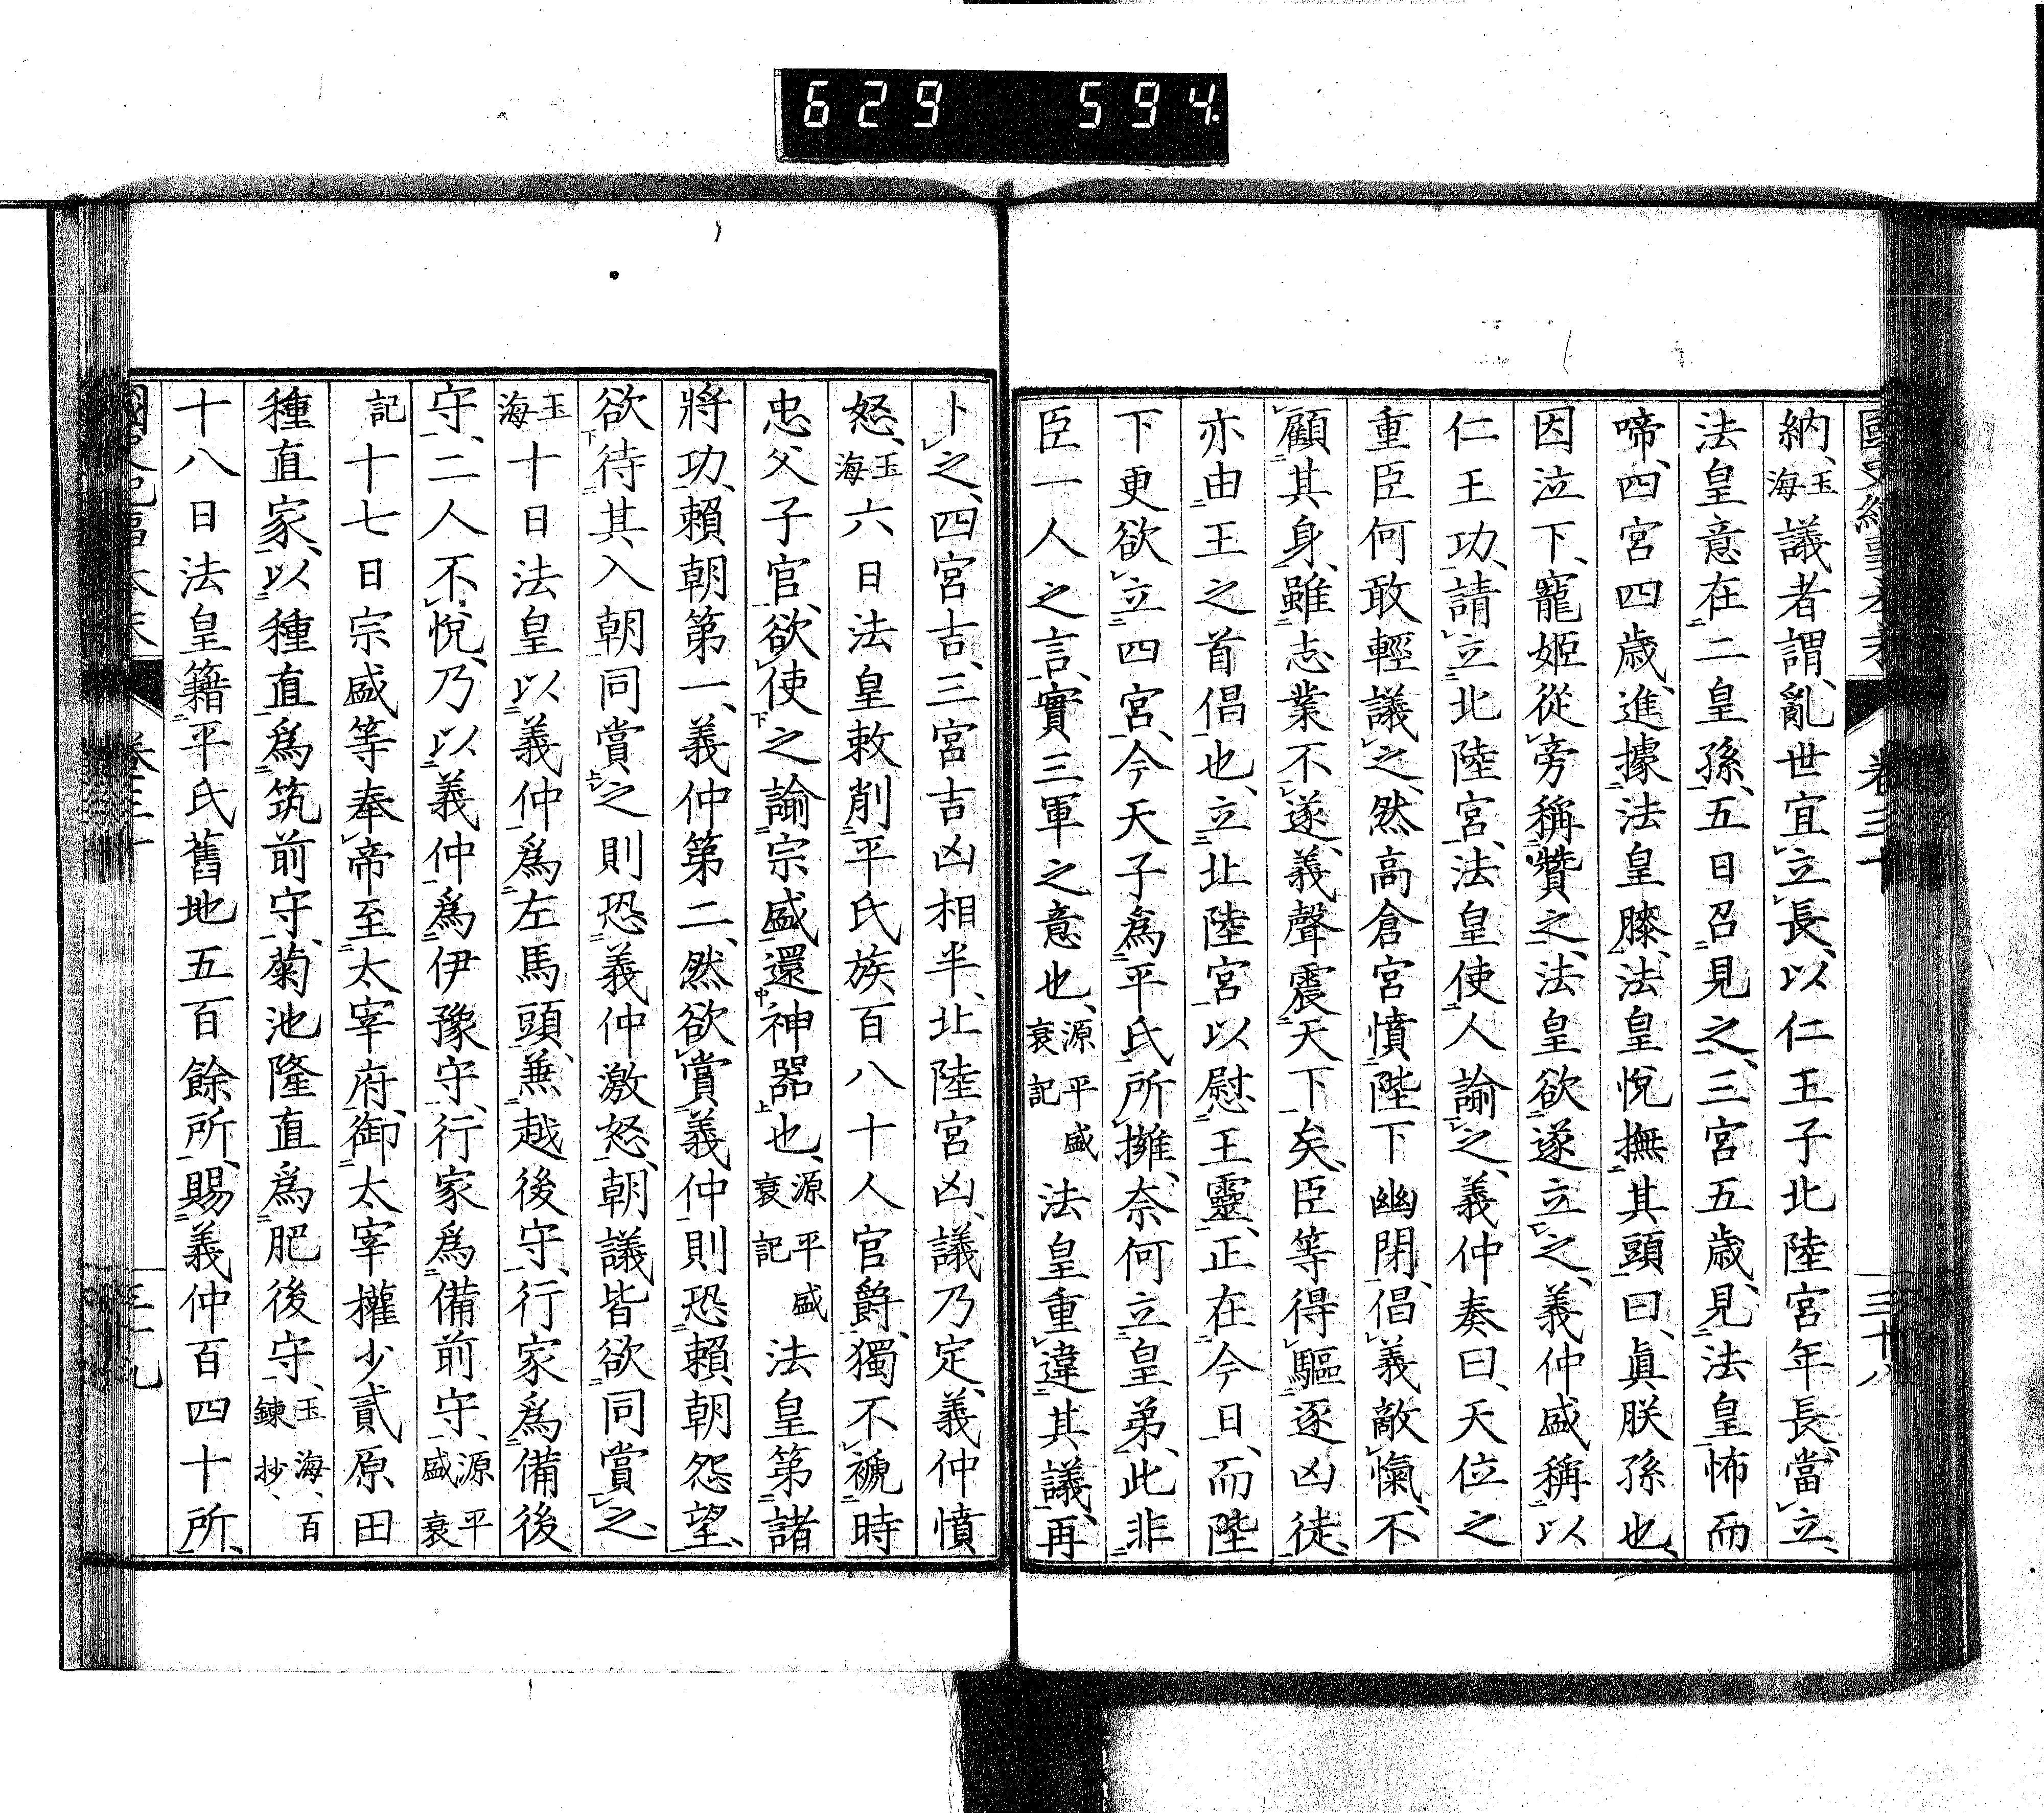 629 594
納、玉海議者謂、亂世宜立長、以仁王子北陸宮年長、當立、
法皇意在二皇孫、五日召見之、三宮五歲、見法皇怖而
啼、四宮四歲、進據法皇膝、法皇悅撫其頭曰、眞朕孫也、
因泣下、寵姬從旁稱贊之、法皇欲遂立之、義仲盛稱以
仁王功、請立北陸宮、法皇使人諭之、義仲奏曰、天位之
重臣何敢輕議之、然高倉宮憤陛下幽閉、倡義敵愾、不
顧其身、雖志業不遂、義聲震天下矣、臣等得驅逐凶徒、
亦由王之首倡也、立北陸宮以慰王靈、正在今日、而陛
下更欲立四宮、今天子爲平氏所擁、奈何立皇弟、此非
臣一人之言、實三軍之意也、源平盛衰記法皇重違其議、再
卜之、四宮吉、三宮吉凶相半、北陸宮凶、議乃定、義仲憤
怒、玉海六日法皇敕削平氏族百八十人官爵、獨不褫時
忠父子官、欲使之諭宗盛還神器也、源平盛衰記法皇第諸
將功、賴朝第一、義仲第二、然欲賞義仲則恐賴朝怨望、
欲待其入朝同賞之則恐義仲激怒、朝議皆欲同賞之、
玉海十日法皇以義仲爲左馬頭、兼越後守、行家爲備後
守、二人不悅、乃以義仲爲伊豫守、行家爲備前守、源平盛衰
記十七日宗盛等奉帝至太宰府、御太宰權少貳原田
種直家、以種直爲筑前守、菊池隆直爲肥後守、玉海、百鍊抄、
十八日法皇籍平氏舊地五百餘所、賜義仲百四十所、